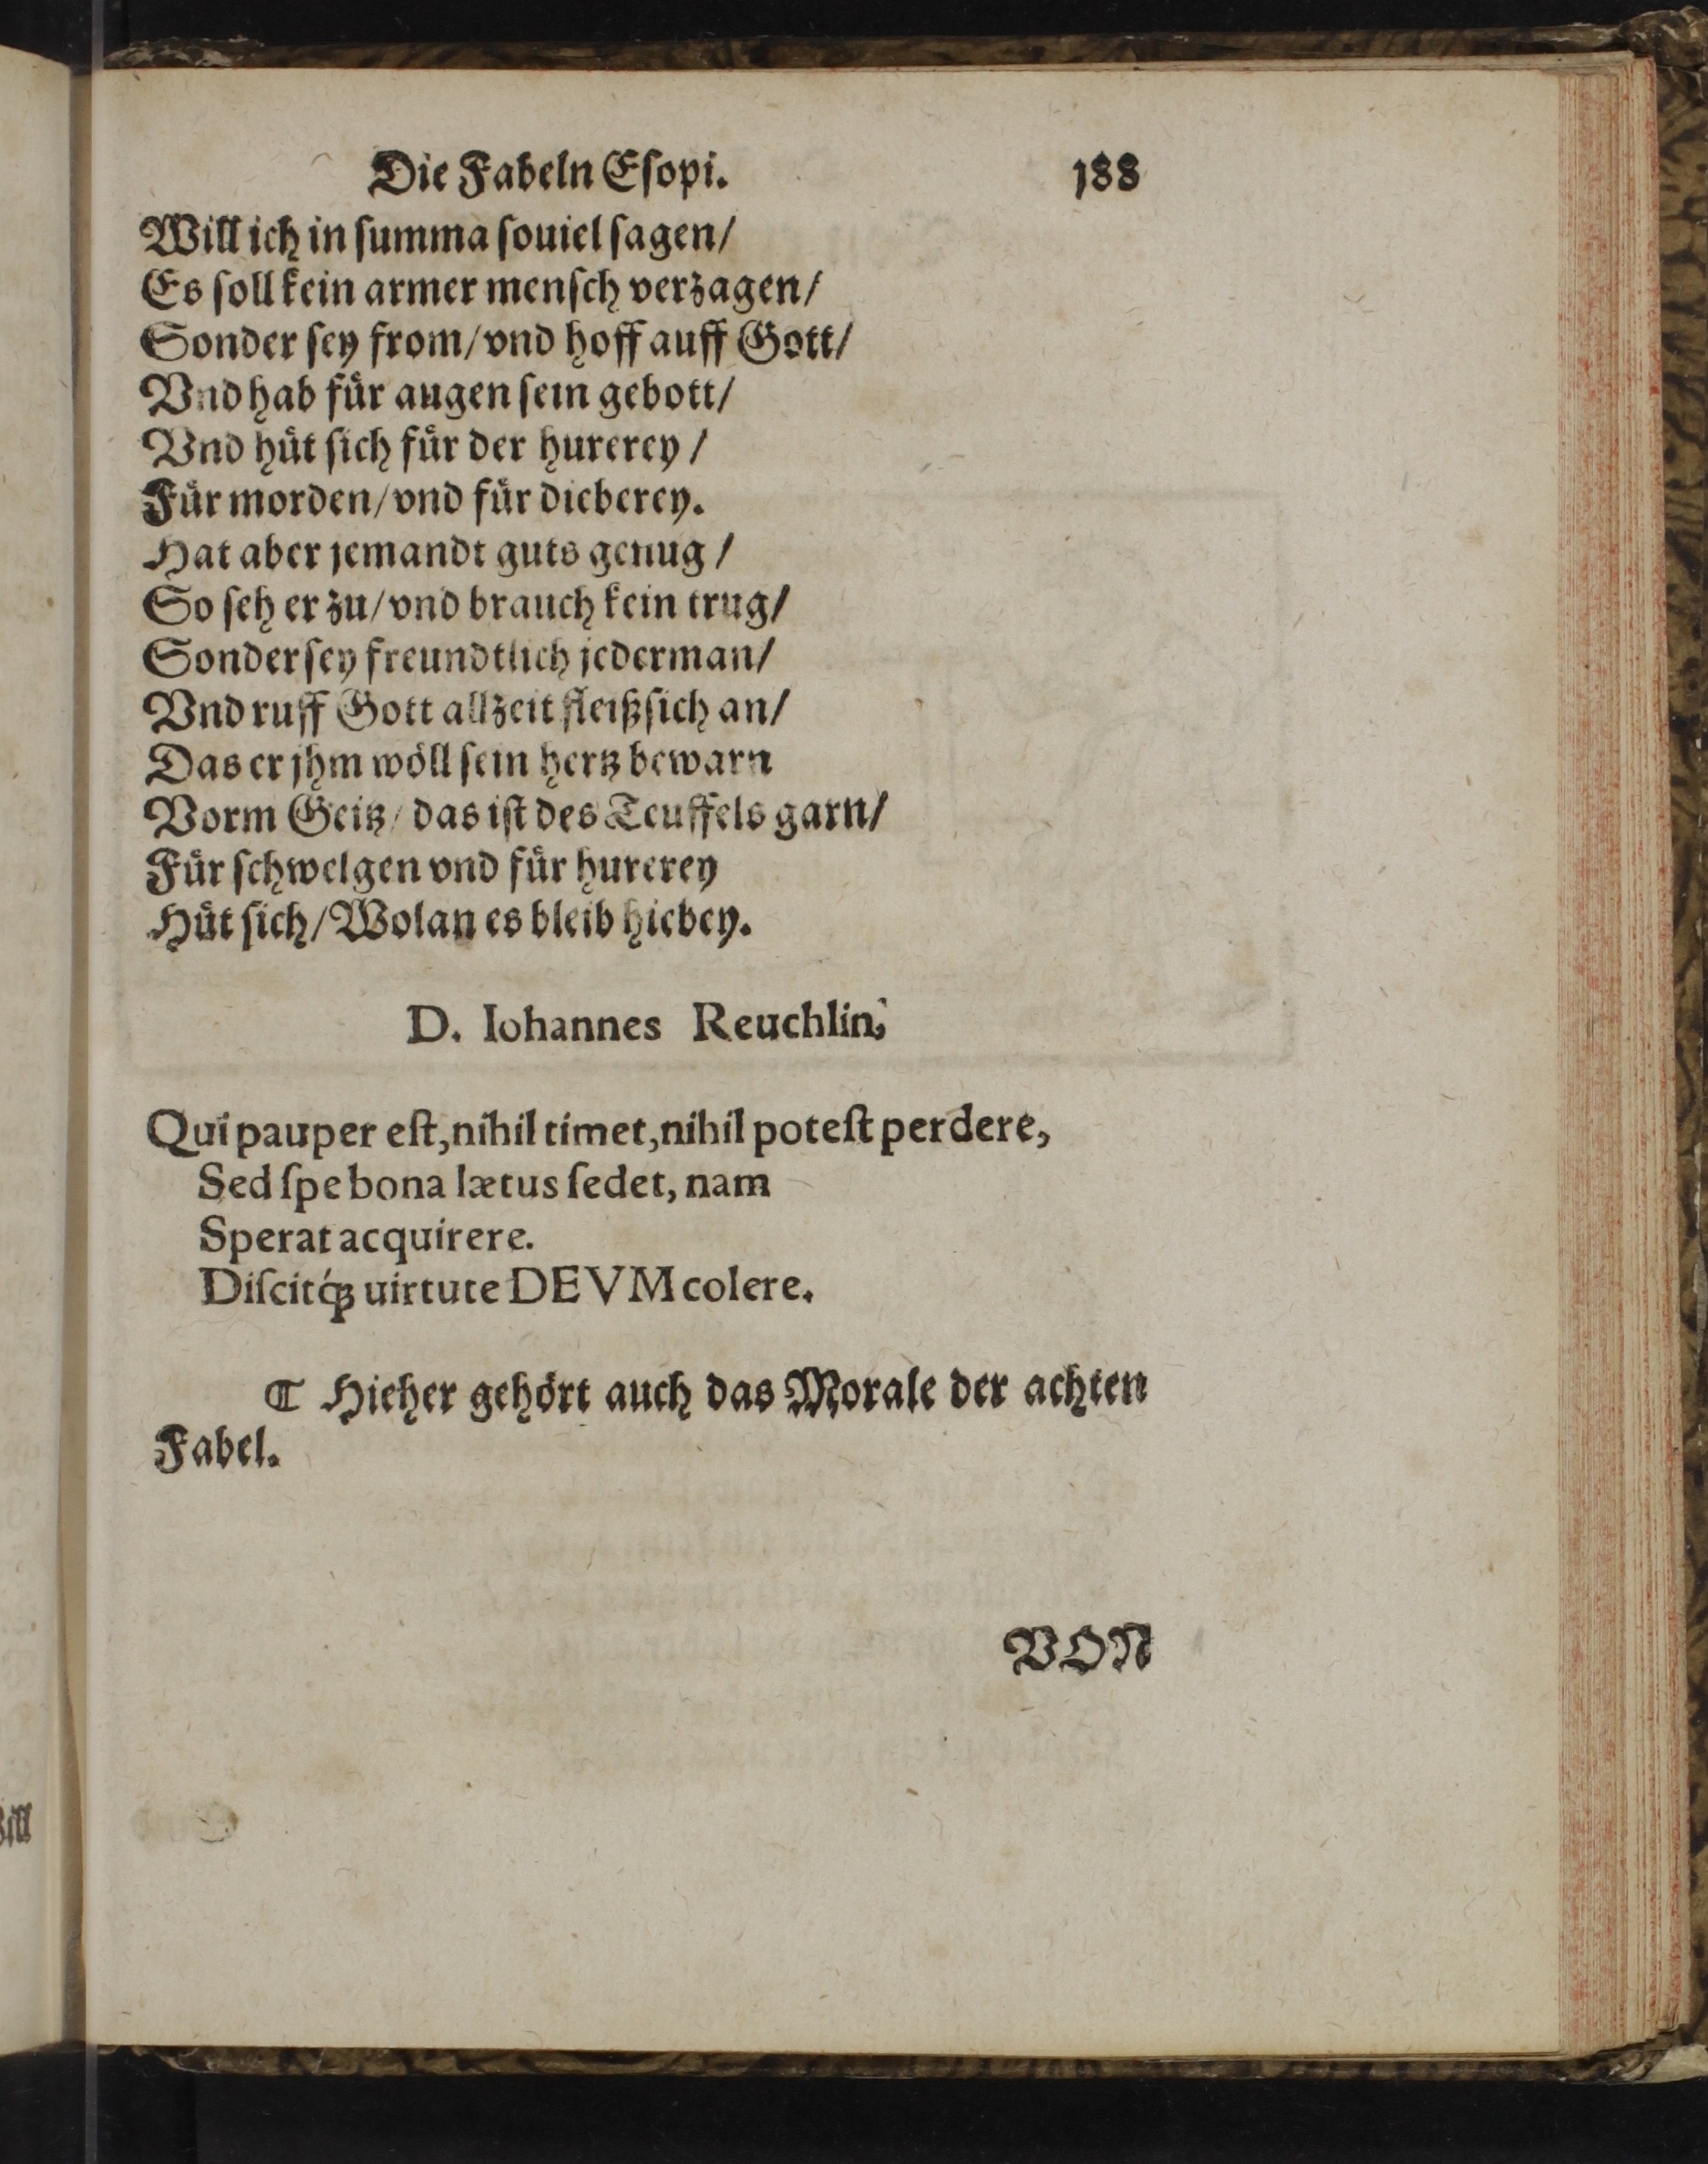 Die Fabeln Eſopi. 188
Will ich in ſumma ſouiel ſagen/
Es ſoll kein armer menſch verzagen/
Sonder ſey from/vnd hoff auff Gott/
Vnd hab für augen ſein gebott/
Vnd hüt ſich für der hurerey/
Für morden/vnd für dieberey.
Hat aber jemandt guts genug/
So ſeh er zu/vnd brauch kein trug/
Sonder ſey freundtlich jederman/
Vnd ruff Gott allzeit fleißſich an/
Das er jhm wöll ſein hertz bewarn
Vorm Geitz/das iſt des Teuffels garn/
Für ſchwelgen vnd für hurerey
Hüt ſich/Wolan es bleib hiebey.
D. Iohannes Reuchlin.
Qui pauper eſt, nihil timet, nihil poteſt perdere,
Sed ſpe bona lætus ſedet, nam
Sperat acquirere.
Diſcitq́ꝫ uirtute DEVM colere.
¶ Hieher gehört auch das Morale der achten
Fabel.
VON